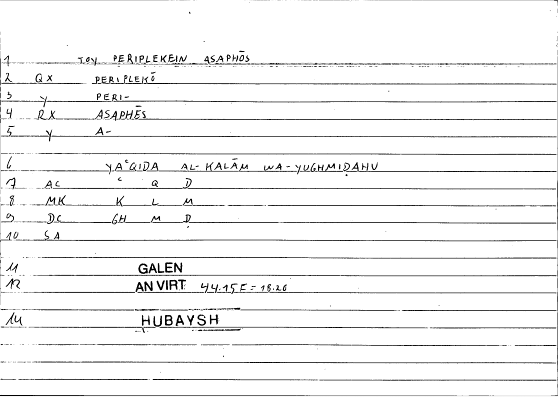 1 TOY PERIPLEKEIN ASAPHŌS
2 QX PERIPLEKŌ
3 Y PERI-
4 RX ASAPHĒS
5 Y A-
6 YAʿQIDA AL-KALĀM WA-YUGHMIḌAHU
7 AC ʿ Q D
8 MK K L M
9 DC GH M Ḍ
10 SA
11 GALEN
12 AN VIRT 44.15F = 18.20
14 HUBAYSH